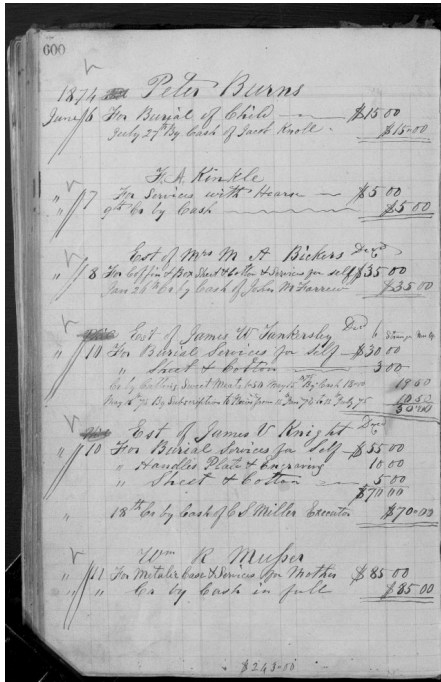 600
1874 Peter Burns
June 6 For Burial of Child $15 00
July 27th By Cash of Jacob Knoll $15.00
F. A. Kinkle
" 7 For Services with Hearse $5 00
9th Cr by Cash $5 00
Est of Mrs M A Bickers Decd
" 8 For Coffin & Box Sheet & Cotton & Services for self $35 00
Jan 26th Cr by Cash of John McFarren $35 00
Est of James W Tankersley Decd
" 10 For Burial Services for Self $30 00
" Sheet & Cotton 3 00
Cr by May By Cash 19 50
May By Subscription
Est of James V Knight Decd
" 10 For Burial Services for Self $55 00
" Handles Plate & Engraving 10.00
" Sheet & Cotton 5 00
$70 00
" 18th Cr by Cash of C S Miller Executor $70.00
Wm R Musser
" 11 For Metalic Case & Services for Mother $85 00
" " Cr by Cash in full $85.00
$243-00